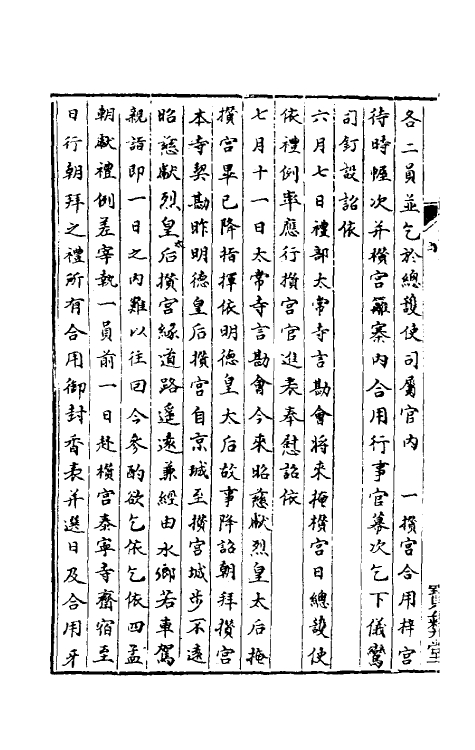 各二員並乞於總護使司屬官內　一攢宮合用梓宮
待時幄次并攢宮籬寨內合用行事官幕次乞下儀鸞
司釘設詔依
六月七日禮部太常寺言勘會將來掩攢宮日總護使
依禮例率應行攢宮官進表奉慰詔依
七月十一日太常寺言勘會今來昭慈獻烈皇太后掩
攢宮畢已降指揮依明德皇太后故事降詔朝拜攢宮
本寺契勘昨明德皇后攢宮自京城至攢宮城步不遠
昭慈獻烈皇太后攢宮緣道路遥遠兼經由水鄉若車駕
親詣即一日之內難以往回今參酌欲乞依乞依四孟
朝獻禮例差宰執一員前一日赴攢宮泰寧寺齋宿至
日行朝拜之禮所有合用御封香表并選日及合用牙